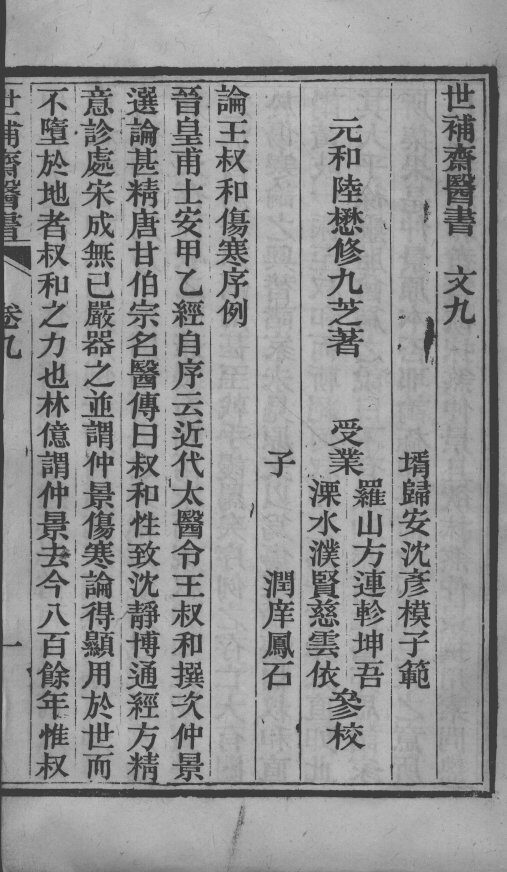 世補齋醫書　文九
壻歸安沈彥模子範
元和陸懋修九芝著　受業　羅山方連軫坤吾　參校
溧水濮賢慈雲依
子　潤庠鳳石
論王叔和傷寒序例
晉皇甫士安甲乙經自序云近代太醫令王叔和撰次仲景
選論甚精唐甘伯宗名醫傳曰叔和性致沈靜博通經方精
意診處宋成無己嚴器之並謂仲景傷寒論得顯用於世而
不墮於地者叔和之力也林億謂仲景去今八百餘年惟叔
世補齋醫書　卷九　一